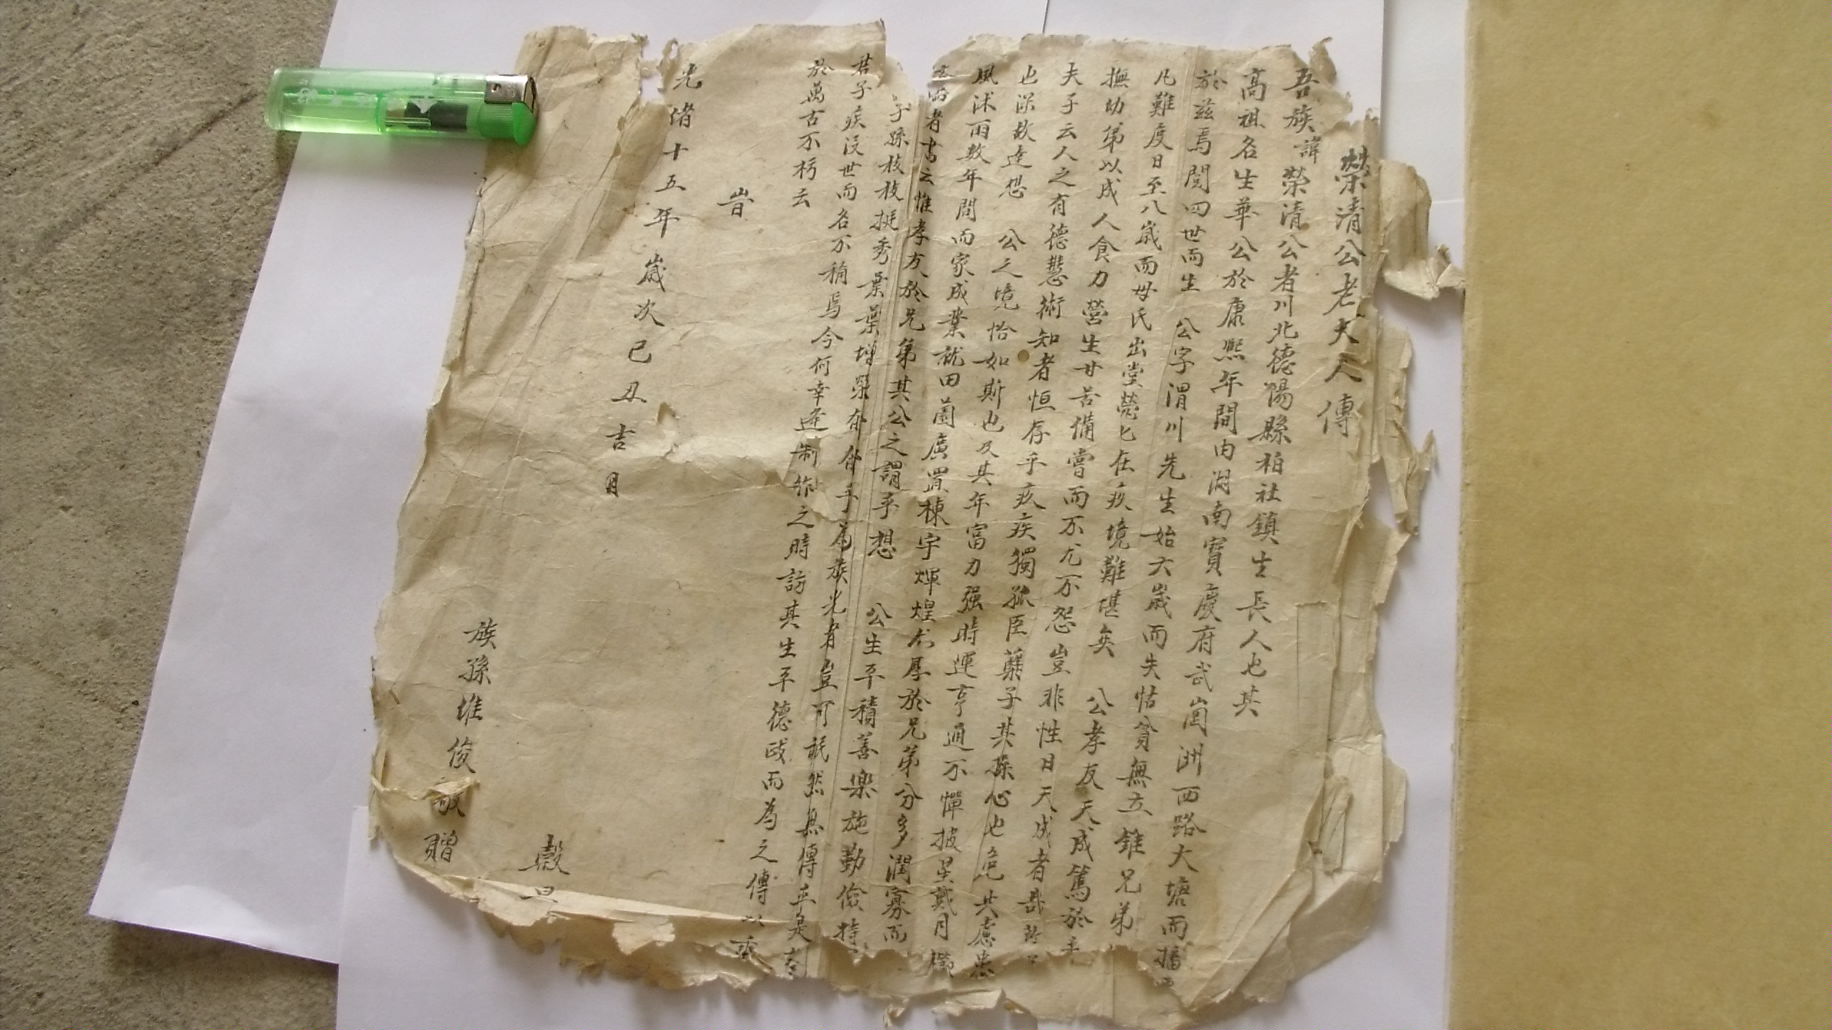 榮清公老大人傳
吾族諱榮清公者川北德陽縣柏社鎮生長人也其
高祖名生華公於康熙年間由湖南寶慶府武岡洲西路大塘而插
於兹焉閱四世而生 公字渭川先生始六歲而失怙貧無立錐兄弟
凡難度日至八歲而母氏出堂煢匕在疚境難堪矣 公孝友天成篤於
撫幼弟以成人食力營生甘苦備嘗而不尤不怨豈非性日天成者哉
夫子云人之有德慧術知者恒存乎疢疾獨孤臣孽子其操心也危其慮患
也深故達想 公之境恰如斯也及其年富力强時運亨通不憚披星戴月櫛
風沐雨數年間而家成業就田園廣置棟宇煇煌尤厚於兄弟分多潤寡而
者書云惟孝友於兄弟其公之謂乎想 公生平積善樂施勤儉持
子孫枝枝挺秀葉葉增榮奋奋乎為族光者豈可祇然無傳乎是
君子疾没世而名不稱焉今何幸逢制作之時訪其生平德政而為之傳以垂
於萬古不朽云
旹
光緒十五年歲次己丑吉月
穀旦
族孫堆俊敬贈